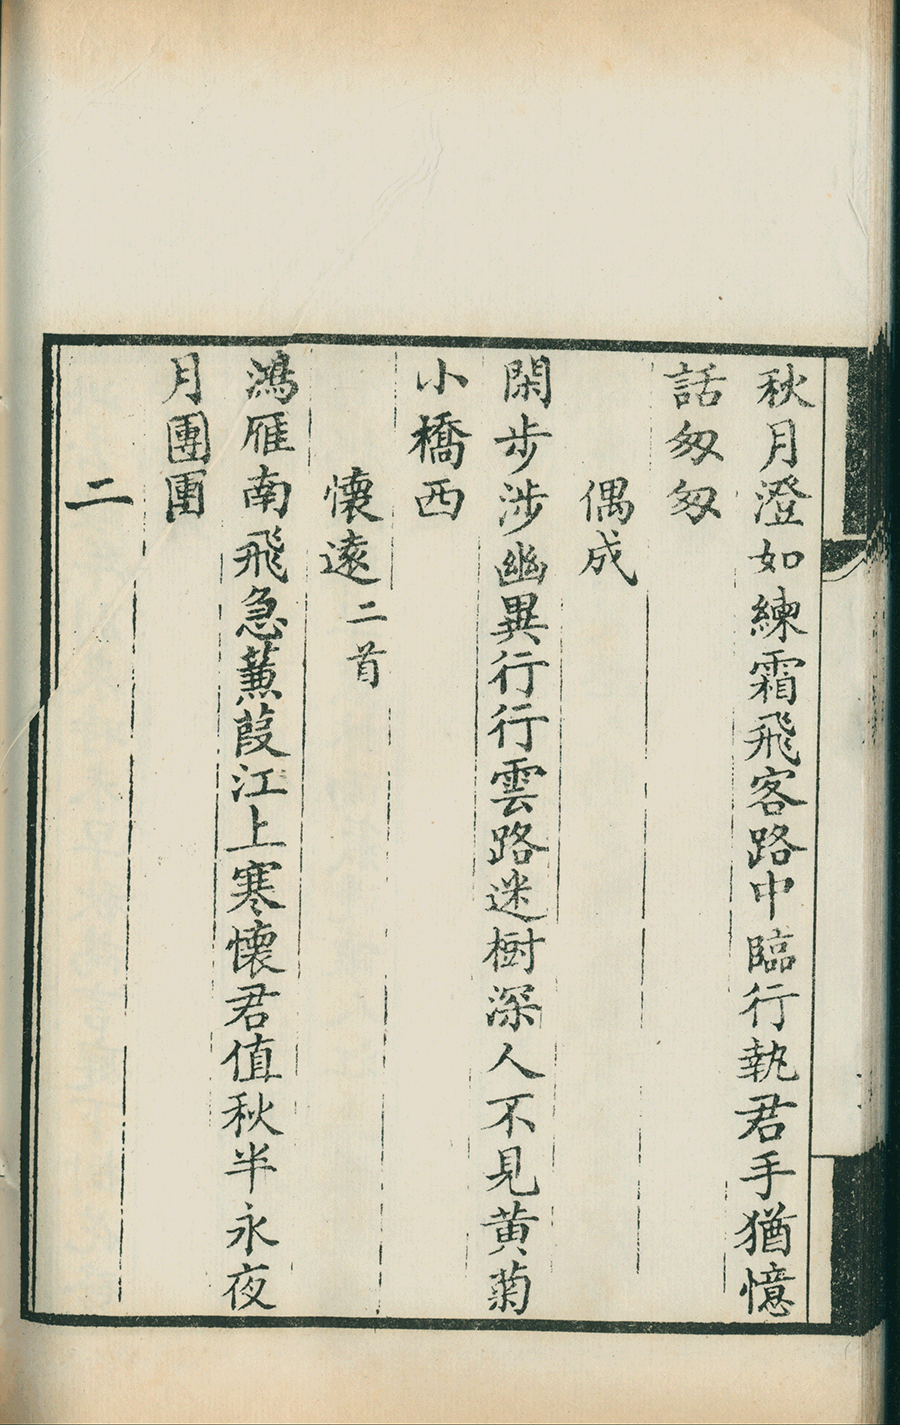 秋月澄如練霜飛客路中臨行執君手猶憶
話匆匆
偶成
閑步涉幽異行行雲路迷樹深人不見黄菊
小橋西
懷遠二首
鴻雁南飛急蒹葭江上寒懷君值秋半永夜
月團團
二